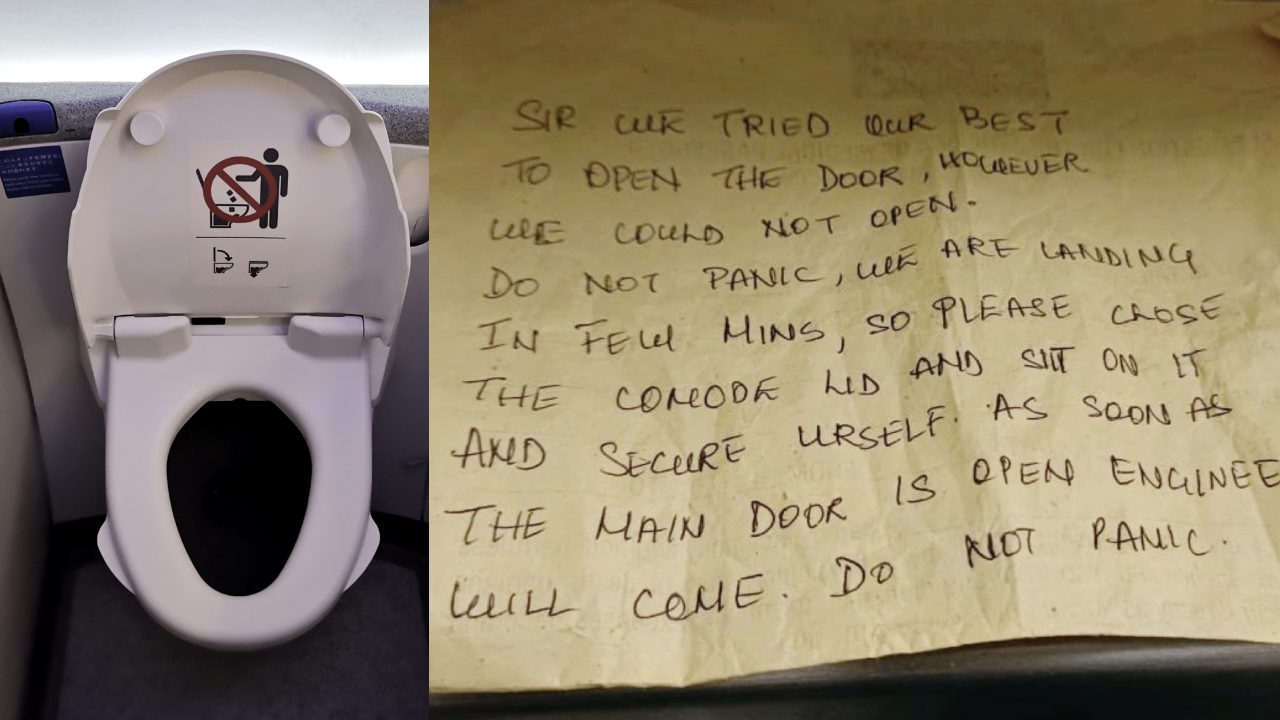 SIR WE TRIED OUR BEST
TO OPEN THE DOOR, HOWEVER
WE COULD NOT OPEN.
DO NOT PANIC, WE ARE LANDING
IN FEW MINS, SO PLEASE CLOSE
THE COMODE LID AND SIT ON IT
AND SECURE URSELF. AS SOON AS
THE MAIN DOOR IS OPEN ENGINEE
WILL COME. DO NOT PANIC.